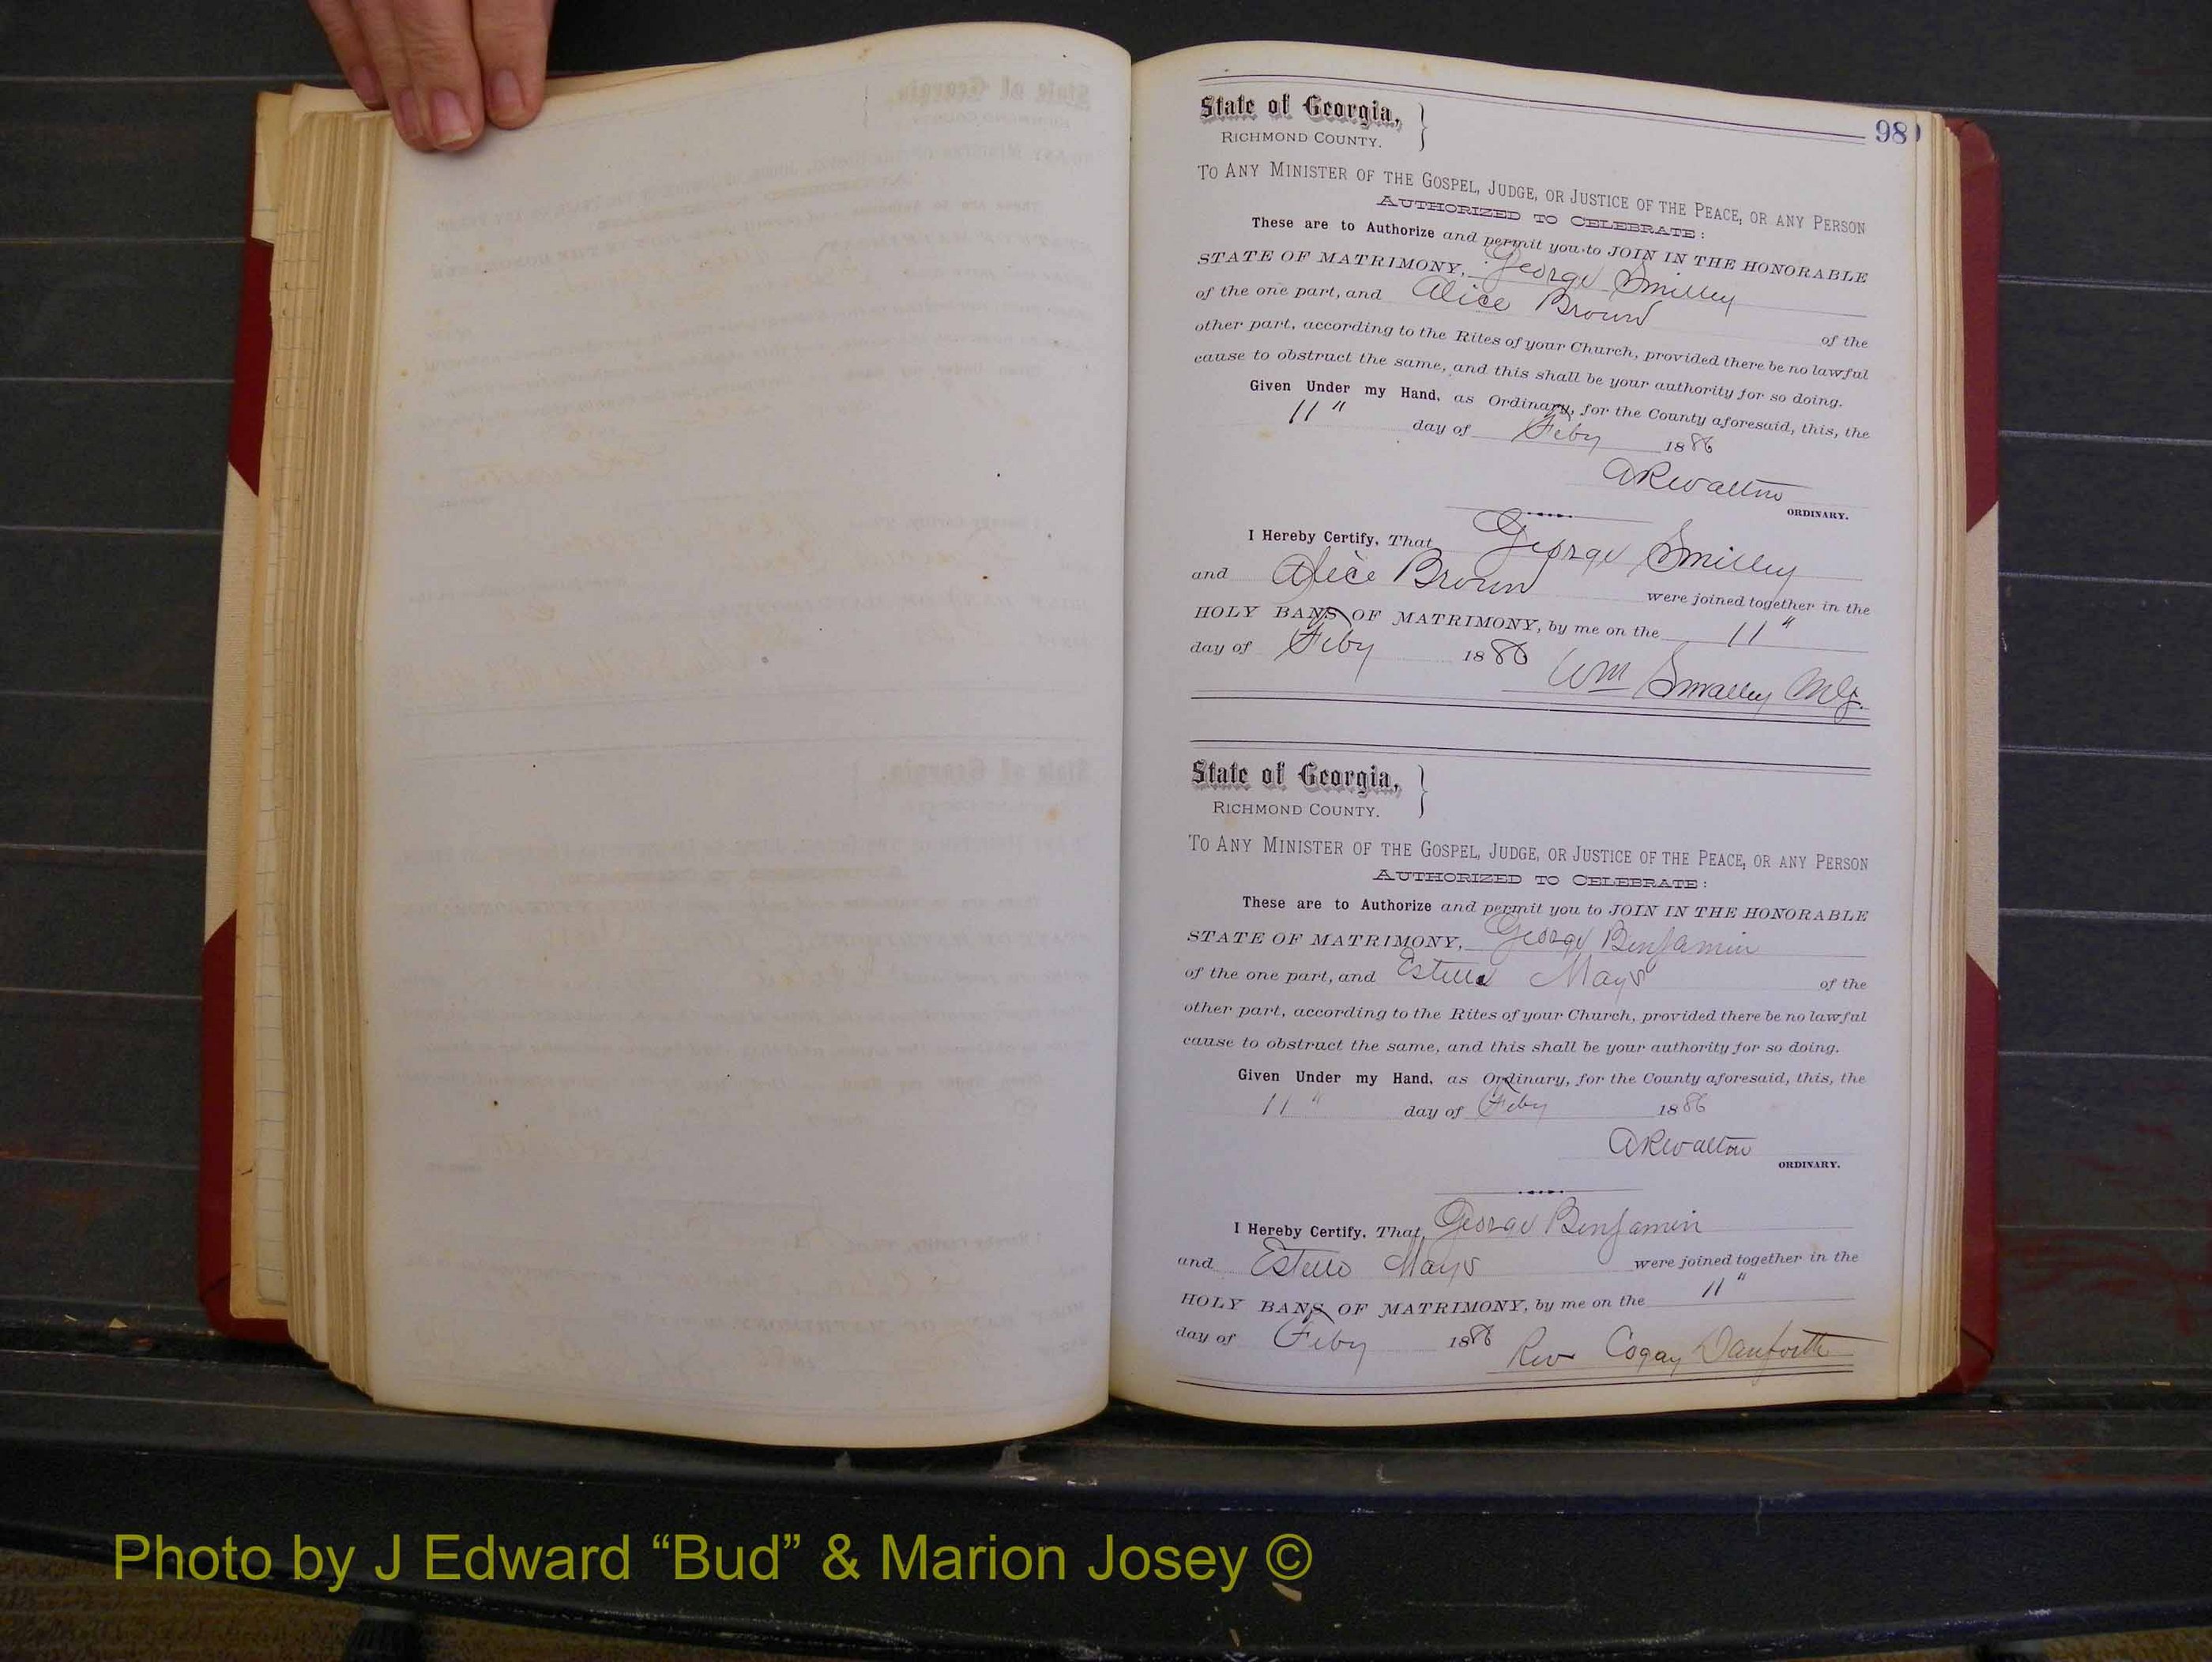 98
State of Georgia,
RICHMOND COUNTY.
TO ANY MINISTER OF THE GOSPEL, JUDGE, OR JUSTICE OF THE PEACE, OR ANY PERSON
AUTHORIZED TO CELEBRATE:
These are to Authorize and permit you to JOIN IN THE HONORABLE
STATE OF MATRIMONY, George Smilley
of the one part, and Alice Brown of the
other part, according to the Rites of your Church, provided there be no lawful
cause to obstruct the same, and this shall be your authority for so doing.
Given Under my Hand, as Ordinary, for the County aforesaid, this, the
11" day of Feby 1886
A R Walton
ORDINARY.
I Hereby Certify, That George Smilley
and Alice Brown were joined together in the
HOLY BANS OF MATRIMONY, by me on the 11"
day of Feby 1886
Wm Smalley M G.
State of Georgia,
RICHMOND COUNTY.
TO ANY MINISTER OF THE GOSPEL, JUDGE, OR JUSTICE OF THE PEACE, OR ANY PERSON
AUTHORIZED TO CELEBRATE:
These are to Authorize and permit you to JOIN IN THE HONORABLE
STATE OF MATRIMONY, George Benjamin
of the one part, and Estella Mays of the
other part, according to the Rites of your Church, provided there be no lawful
cause to obstruct the same, and this shall be your authority for so doing.
Given Under my Hand, as Ordinary, for the County aforesaid, this, the
11" day of Feby 1886
A R Walton
ORDINARY.
I Hereby Certify, That George Benjamin
and Estella Mays were joined together in the
HOLY BANS OF MATRIMONY, by me on the 11"
day of Feby 1886 Rev Cogay Danforth
Photo by J Edward “Bud” & Marion Josey ©